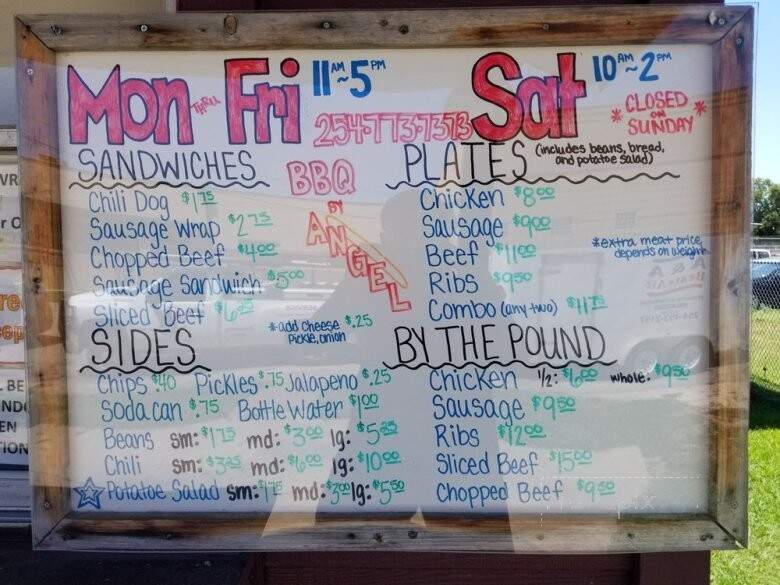 Mon THRU Fri 11AM~5PM Sat 10AM~2PM
* CLOSED ON SUNDAY *
254-773-7373
BBQ BY ANGEL
SANDWICHES
Chili Dog $1.75
Sausage Wrap $2.75
Chopped Beef $4.00
Sausage Sandwich $5.00
Sliced Beef
*add cheese $.25
pickle, onion
PLATES (includes beans, bread, and potatoe salad)
Chicken $8.00
Sausage $9.00
Beef $11.00
Ribs $9.50
Combo (any two)
*extra meat price depends on weight
SIDES
Chips Pickles $.75 Jalapeno $.25
Soda can $.75 Bottle Water $1.00
Beans sm: $1.75 md: $3.00 lg:
Chili sm: md: $6.00 lg: $10.00
Potatoe Salad sm: $1.75 md: $3.00 lg: $5.50
BY THE POUND
Chicken 1/2: whole: $9.50
Sausage $9.50
Ribs $12.00
Sliced Beef $15.00
Chopped Beef $9.50